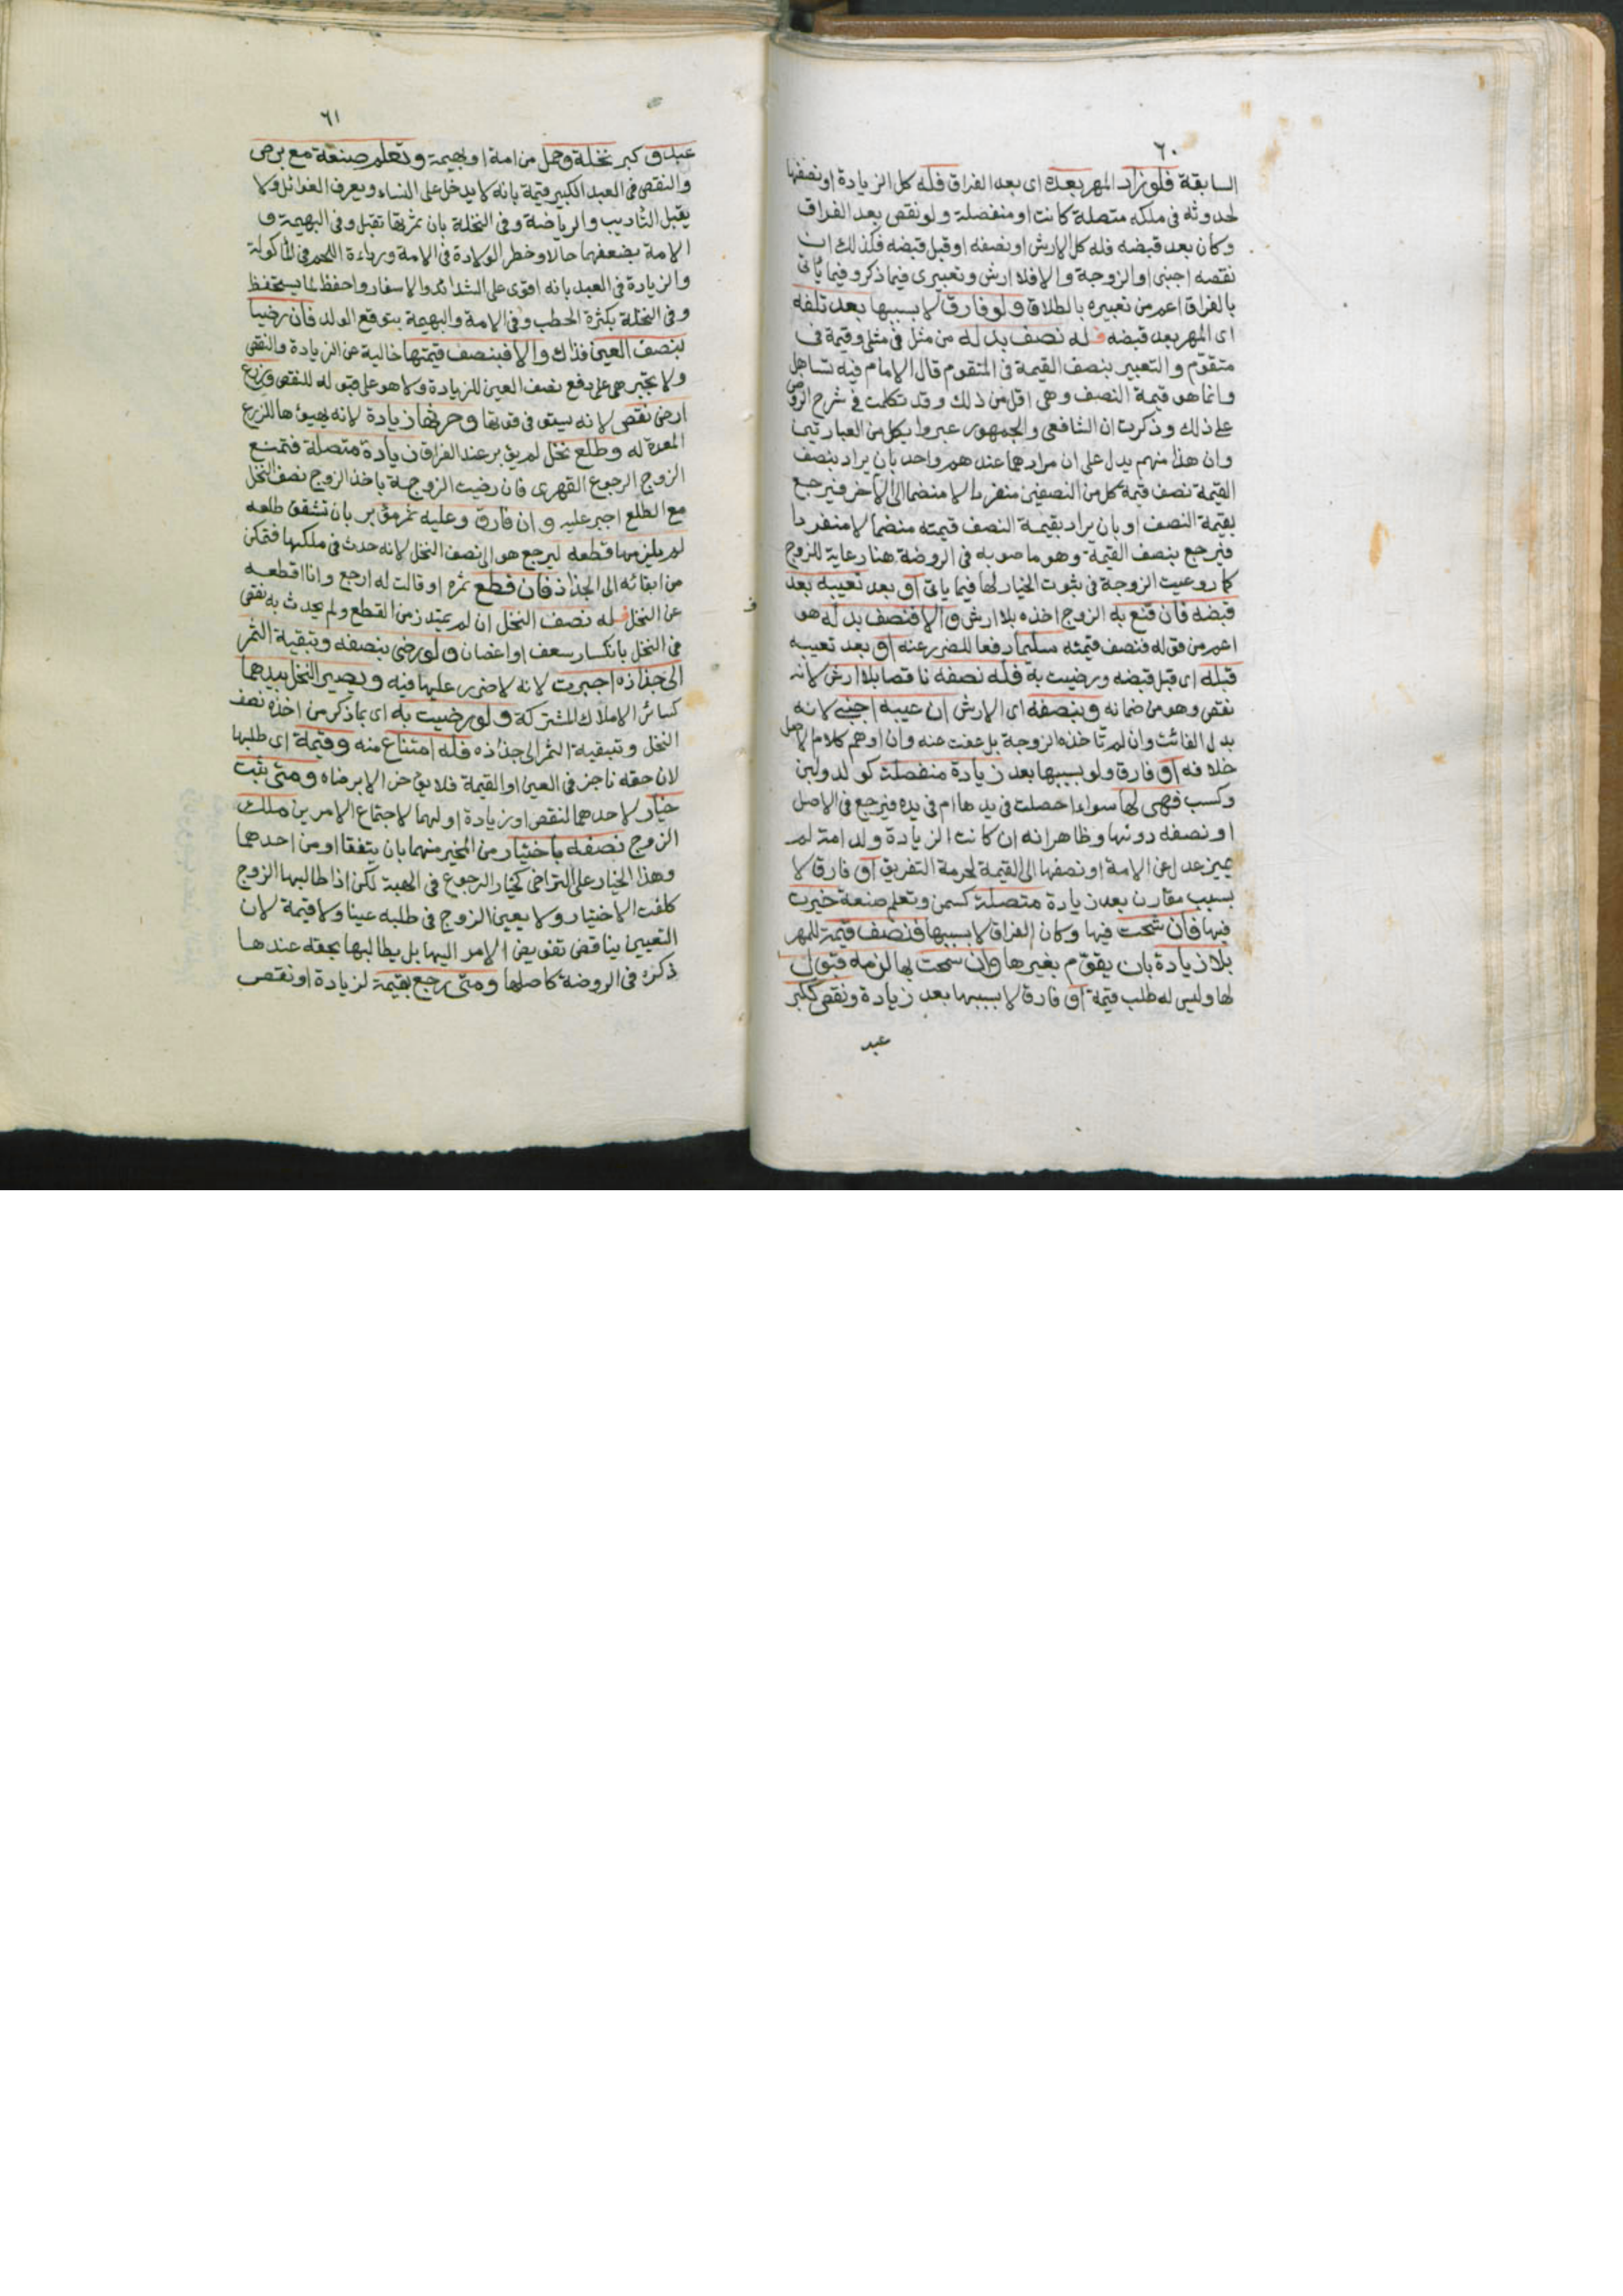 ٦٠
السابقة فلو زاد المهر بعده اى بعد الفراق فله كل الزيادة او نصفها
لحدوثه فى ملكه متصلة كانت او منفصلة ولو نقص بعد الفراق
وكان بعد قبضه فله كل الارش او نصفه او قبل قبضه فكذلك ان
نقصه اجنبى او الزوجة والا فلا ارش وتعبيرى فيما ذكر وفيما ياتى
بالفراق اعم من تعبيره بالطلاق ولو فارق لا بسببها بعد تلفه
اى المهر بعد قبضه فله نصف بدله من مثل فى مثلى وقيمة فى
متقوم والتعبير بنصف القيمة فى المتقوم قال الامام فيه تساهل
وانما هو قيمة النصف وهى اقل من ذلك وقد تكلمت فى شرح الروض
على ذلك وذكرت ان الشافعى والجمهور عبروا بكل من العبارتين
وان هذا منهم يدل على ان مرادهما عندهم واحد بان يراد بنصف
القيمة نصف قيمة كل من النصفين منفردا لا منضما الى الآخر فيرجع
بقيمة النصف او بان يراد بقيمة النصف قيمته منضما لا منفردا
فيرجع بنصف القيمة وهو ما صوبه فى الروضة هنا رعاية للزوج
كما روعيت الزوجة فى ثبوت الخيار لها فيما ياتى او بعد تعيبه بعد
قبضه فان قنع به الزوج اخذه بلا ارش والا فنصف بدله هو
اعم من قوله فنصف قيمته سليما دفعا للضرر عنه او بعد تعيبه
قبله اى قبل قبضه ورضيت به فله نصفه ناقصا بلا ارش لانه
نقص وهو من ضمانه وبنصفه اى الارش ان عيبه اجنبى لانه
بدل الفائت وان لم تاخذه الزوجة بل عفت عنه وان اوهم كلام الاصل
خلافه او فارق ولو بسببها بعد زيادة منفصلة كولد ولبن
وكسب فهى لها سواء احصلت فى يدها ام فى يده فيرجع فى الاصل
او نصفه دونها وظاهر انه ان كانت الزيادة ولد امة لم
يميز عدل عن الامة او نصفها الى القيمة لحرمة التفريق او فارق لا
بسبب مقارن بعد زيادة متصلة كسمن وتعلم صنعة خيرت
فيها فان شحت فيها وكان الفراق لا بسببها فنصف قيمة للمهر
بلا زيادة بان يقوم بغيرها وان سمحت بها لزمه قبول
لها وليس له طلب قيمة او فارق لا بسببها بعد زيادة ونقص ككبر
عبد
٦١
عبد وكبر نخلة وحمل من امة او بهيمة وتعلم صنعة مع برص
والنقص فى العبد الكبير قيمة بانه لا يدخل على النساء ويعرف الغوائل ولا
يقبل التاديب والرياضة وفى النخلة بان ثمرتها تقل وفى البهيمة و
الامة بضعفهما حالا وخطر الولادة فى الامة ورداءة اللحم فى الماكولة
والزيادة فى العبد بانه اقوى على الشدائد والاسفار واحفظ لما يستحفظ
وفى النخلة بكثرة الحطب وفى الامة والبهيمة بتوقع الولد فان رضيا
بنصف العين فذاك والا فبنصف قيمتها خالية عن الزيادة والنقص
ولا تجبر هى على دفع نصف العين للزيادة ولا هو على قبوله للنقص وزرع
ارض نقص لانه يستوفى قوتها وحرثها زيادة لانه يهيؤها للزرع
المعدة له وطلع نخل لم يؤبر عند الفراق زيادة متصلة فتمنع
الزوج الرجوع القهرى فان رضيت الزوجة باخذ الزوج نصف النخل
مع الطلع اجبر عليه وان فارق وعليه ثمر مؤبر بان تشقق طلعه
لم يلزمها قطعه ليرجع هو الى نصف النخل لانه حدث فى ملكها فتمكن
من ابقائه الى الجذاذ فان قطع ثمره او قالت له ارجع وانا اقطعه
عن النخل فله نصف النخل ان لم يمتد زمن القطع ولم يحدث به نقص
فى النخل بانكسار سعف او اغصان ولو رضى بنصفه وتبقية الثمر
الى جذاذه اجبرت لانه لا ضرر عليها فيه ويصير النخل بيدهما
كسائر الاملاك المشتركة ولو رضيت به اى بما ذكر من اخذه نصف
النخل وتبقية الثمر الى جذاذه فله امتناع منه وقيمة اى طلبها
لان حقه ناجز فى العين او القيمة فلا يؤخر الا برضاه ومتى ثبت
خيار لاحدهما لنقص او زيادة او لهما لاجتماع الامرين ملك
الزوج نصفه باختيار من المخير منهما بان يتفقا او من احدهما
وهذا الخيار على التراخى كخيار الرجوع فى الهبة لكن اذا طالبها الزوج
كلفت الاختيار ولا يعين الزوج فى طلبه عينا ولا قيمة لان
التعيين يناقض تفويض الامر اليها بل يطالبها بحقه عندها
ذكره فى الروضة كاصلها ومتى رجع بقيمة لزيادة او نقص